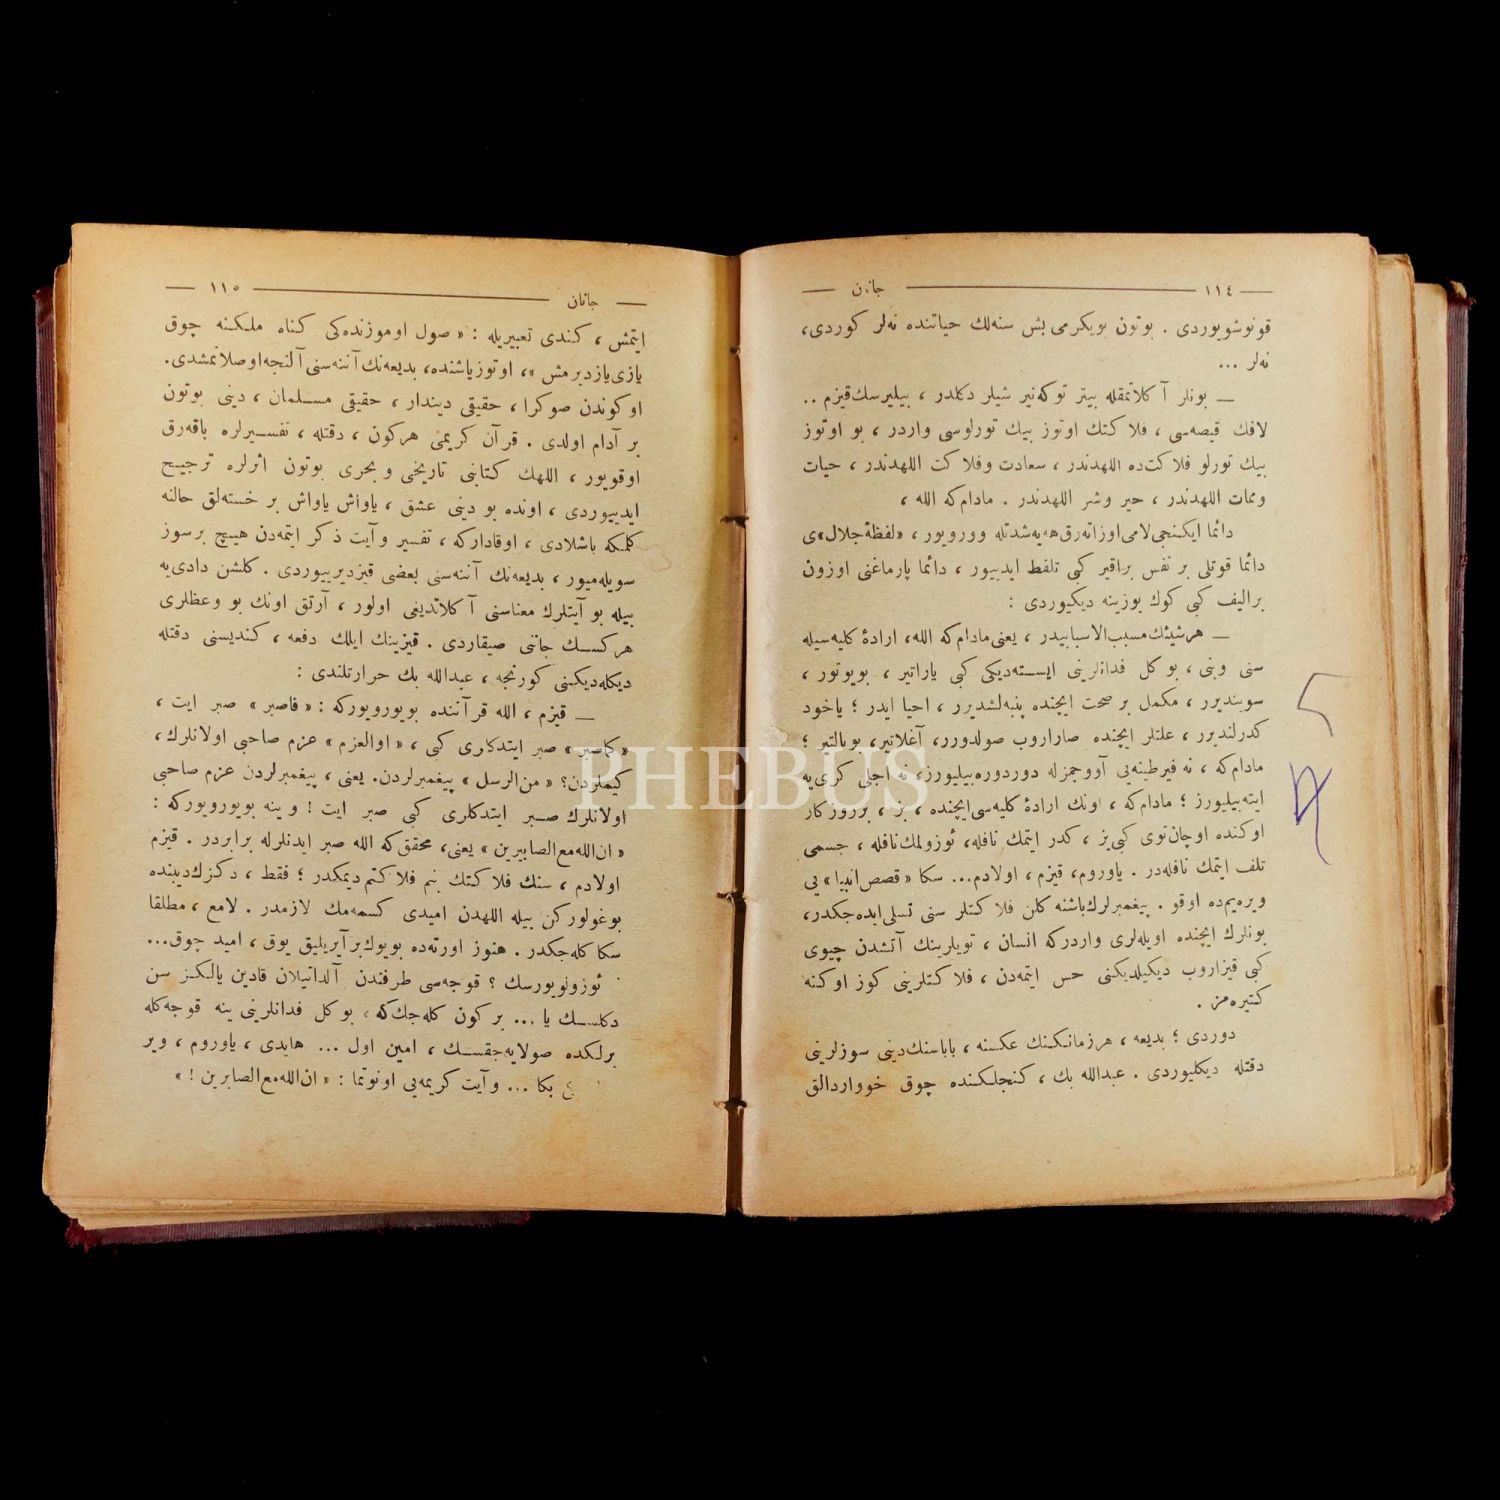 — ١١٤ — جانان —
قونوشویوردی . بوتون بو یکرمی بش سنه‌لك حیاتنده نه‌لر كوردی،
نه‌لر ...
— بونلر آ كلاتمقله بیتر توكه‌نیر شیلر دكلدر ، بیلیرسك قیزم ..
لافك قیصه‌سی ، فلا كتك اوتوز بیك تورلوسی واردر ، بو اوتوز
بیك تورلو فلاكت‌ده اللهدندر ، سعادت وفلاكت اللهدندر ، حیات
وممات اللهدندر ، خیر وشر اللهدندر . مادام‌كه الله ،
دائما ایكنجی لامی اوزاته‌رق هه‌یه شدتله وورویور ، «لفظهٔ جلال»ی
دائما قوتلی بر نفس براقیر كبی تلفط ایدییور ، دائما پارماغنی اوزون
برالیف كبی كوك یوزینه دیكیوردی :
— هرشیئك مسبب‌الاسبابیدر ، یعنی مادام‌كه الله، ارادهٔ كلیه سیله
سنی وبنی ، بو كل فدانلرینی ایسته‌دیكی كبی یاراتیر ، بویوتور ،
سویندیرر ، مكمل بر صحت ایچنده پنبه‌لشدیرر ، احیا ایدر ؛ یاخود
كدرلندیرر ، علتلر ایچنده صاراروب صولدورر، آغلاتیر، بوكالتیر ؛
مادام‌كه ، نه فیرطینه‌یی آووجمزله دوردوره‌بیلیورز، نه اجلی كری‌یه
ایته‌بیلیورز ؛ مادام‌كه ، اونك ارادهٔ كلیه‌سی ایچنده ، بز ، برروزكار
اوكنده اوچان توی كبی‌یز ، كدر ایتمك نافله، ئوزولمك نافله ، جسمی
تلف ایتمك نافله‌در . یاوروم، قیزم ، اولادم... سكا «قصص‌انبیا»یی
ویره‌یم‌ده اوقو . پیغمبرلرك‌باشنه كلن فلاكتلر سنی تسلی‌ایده‌جكدر،
بونلرك ایچنده اویله‌لری واردركه انسان ، تویلرینك آتشدن چیوی
كبی قیزاروب دیكیلدیكنی حس ایتمه‌دن ، فلا كتلرینی كوز اوكنه
كتیره‌مز .
دوردی ؛ بدیعه ، هرزمانكنك عكسنه ، باباسنك‌دینی سوزلرینی
دقتله دیكلیوردی . عبدالله بك ، كنجلكنده چوق خوواردالق
— جانان — ١١٥ —
ایتمش ، كندی تعبیریله : «صول اوموزنده‌كی كناه ملكنه چوق
یازی‌یازدیرمش »، اوتوزیاشنده، بدیعه‌نك آننه‌سنی آلنجه‌اوصلانمشدی.
اوكوندن صوكرا ، حقیقی دیندار ، حقیقی مسلمان ، دینی بوتون
بر آدام اولدی . قرآن كریمی هركون ، دقتله ، تفسیرلره باقه‌رق
اوقویور ، اللهك كتابنی تاریخی و بحری بوتون اثرلره ترجیح
ایدییوردی ، اونده بو دینی عشق ، یاواش یاواش بر خسته‌لق حالنه
كلمكه باشلادی ، اوقاداركه ، تفسیر وآیت ذكر ایتمه‌دن هیچ برسوز
سویله‌میور ، بدیعه‌نك آننه‌سنی بعضی قیزدیرییوردی . كلشن دادی‌یه
بیله بو آیتلرك معناسنی آكلاتدیغی اولور ، آرتق اونك بو وعظلری
هركسك جانی صیقاردی . قیزینك ایلك دفعه ، كندیسنی دقتله
دیكله‌دیكنی كورنجه ، عبدالله بك حرارتلندی :
— قیزم ، الله قرآننده بویورویوركه : «فاصبر» صبر ایت ،
«كماصبر» صبر ایتدكلری كبی ، «اوالعزم» عزم صاحبی اولانلرك،
كیملردن؟ «من‌الرسل» پیغمبرلردن. یعنی ، پیغمبرلردن عزم صاحبی
اولانلرك صبر ایتدكلری كبی صبر ایت ! وینه بویورویوركه :
«ان‌الله‌مع‌الصابرین» یعنی، محقق‌كه الله صبر ایدنلرله برابردر . قیزم
اولادم ، سنك فلا كتك بنم فلا كتم دیمكدر ؛ فقط ، دكزك‌دیبنده
بوغولوركن بیله اللهدن امیدی كسمه‌مك لازمدر . لامع ، مطلقا
سكا كله‌جكدر . هنوز اورته‌ده بویوك‌برآیریلیق یوق ، امید چوق...
ئوزونویورسك ؟ قوجه‌سی طرفندن آلداتیلان قادین یالكز سن
دكلسك یا ... بر كون كله‌جك كه ، بو كل فدانلرینی ینه قوجه‌كله
برلكده صولایه‌جقسك ، امین اول ... هایدی ، یاوروم ، ویر
بكا ... وآیت كریمه‌یی اونوتما : «ان‌الله‌مع‌الصابرین !»
PHEBUS